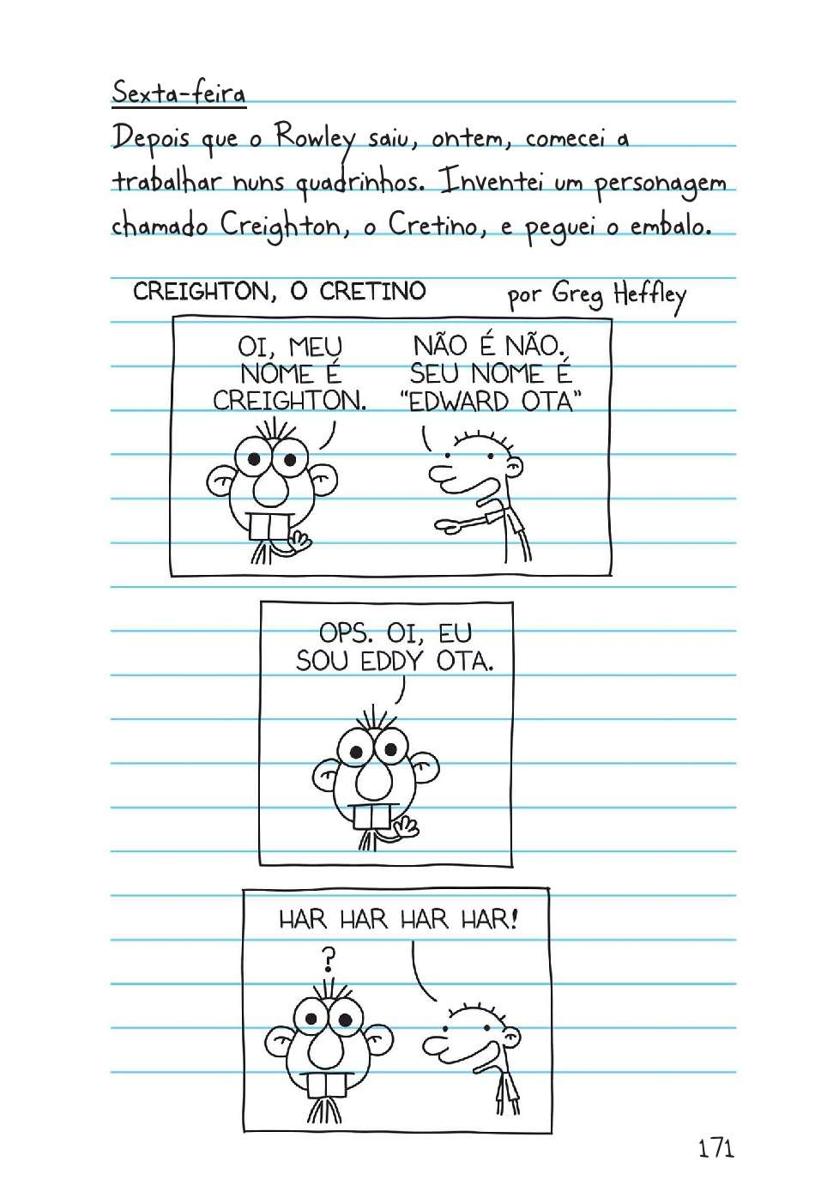 Sexta-feira
Depois que o Rowley saiu, ontem, comecei a
trabalhar nuns quadrinhos. Inventei um personagem
chamado Creighton, o Cretino, e peguei o embalo.
CREIGHTON, O CRETINO
por Greg Heffley
OI, MEU
NOME É
CREIGHTON.
NÃO É NÃO.
SEU NOME É
"EDWARD OTA"
OPS. OI, EU
SOU EDDY OTA.
HAR HAR HAR HAR!
?
171